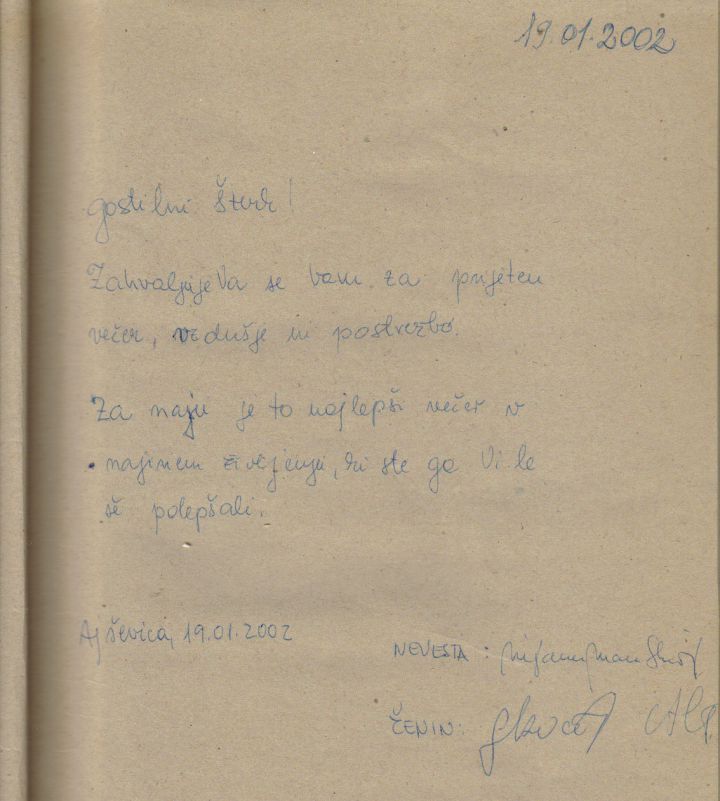 19.01.2002
gostilni Štirk!
Zahvaljujeva se vam za prijeten
večer, vzdušje in postrežbo.
Za naju je to najlepši večer v
najinem življenju, ki ste ga Vi le
še polepšali.
Ajševica, 19.01.2002
NEVESTA:
ŽENIN: